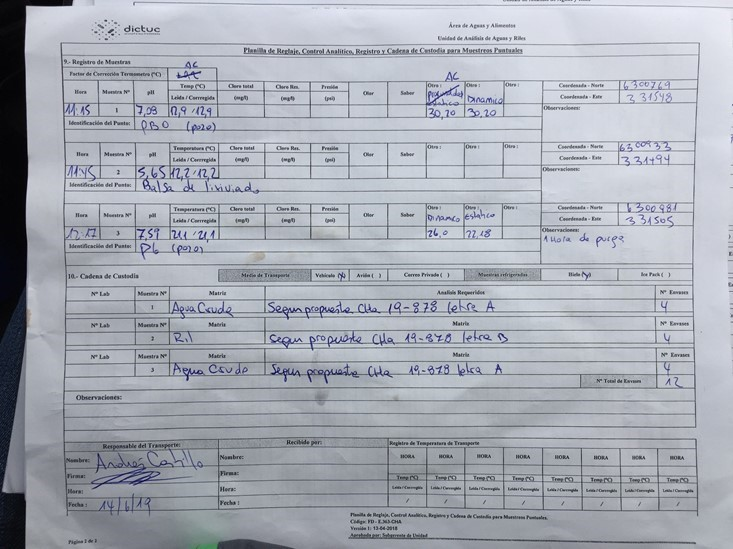 dictuc
Área de Aguas y Alimentos
Unidad de Análisis de Aguas y Riles
Planilla de Reglaje, Control Analítico, Registro y Cadena de Custodia para Muestreos Puntuales
9.- Registro de Muestras AC AC
Factor de Corrección Termometro (ºC)
Hora Muestra Nº pH Temp (ºC) Leída / Corregida Cloro total (mg/l) Cloro Res. (mg/l) Presión (psi) Olor Sabor Otro : estatico Otro : Dinamico Otro : Coordenada - Norte 6300769
Coordenada - Este 331548
11:15 1 7,09 12,9 / 12,9 30,20 30,20 Observaciones:
Identificación del Punto: PBO (pozo)
Hora Muestra Nº pH Temperatura (ºC) Leída / Corregida Cloro total (mg/l) Cloro Res. (mg/l) Presión (psi) Olor Sabor Otro : Otro : Otro : Coordenada - Norte 6300933
Coordenada - Este 331494
11:45 2 5,65 12,2 / 12,2 Observaciones:
Identificación del Punto: Balsa de lixiviado
Hora Muestra Nº pH Temperatura (ºC) Leída / Corregida Cloro total (mg/l) Cloro Res. (mg/l) Presión (psi) Olor Sabor Otro : Dinamico Otro : Estatico Otro : Coordenada - Norte 6300981
Coordenada - Este 331505
12:17 3 7,59 21,1 / 21,1 26,0 22,18 Observaciones: 1 Hora de purga
Identificación del Punto: P6 (pozo)
10.- Cadena de Custodia Medio de Transporte Vehículo (x) Avión ( ) Correo Privado ( ) Muestras refrigeradas Hielo (x) Ice Pack ( )
Nº Lab Muestra Nº Matriz Análisis Requeridos Nº Envases
1 Agua Cruda Segun propuesta CHa 19-878 letra A 4
Nº Lab Muestra Nº Matriz Matriz Nº Envases
2 Ril Segun propuesta CHa 19-878 letra B 4
Nº Lab Muestra Nº Matriz Matriz Nº Envases
3 Agua Cruda Segun propuesta CHa 19-878 letra A 4
Nº Total de Envases 12
Observaciones:
Responsable del Transporte: Recibido por: Registro de Temperatura de Transporte
Nombre: Andrés Castillo Nombre: HORA HORA HORA HORA HORA HORA HORA HORA
Firma: Firma:
Temp (ºC) Temp (ºC) Temp (ºC) Temp (ºC) Temp (ºC) Temp (ºC) Temp (ºC) Temp (ºC)
Hora: Hora: Leída / Corregida Leída / Corregida Leída / Corregida Leída / Corregida Leída / Corregida Leída / Corregida Leída / Corregida Leída / Corregida
Fecha : 14/6/19 Fecha : / / / / / / / /
Planilla de Reglaje, Control Analítico, Registro y Cadena de Custodia para Muestreos Puntuales.
Código: FD - EJ63-CHA
Versión 1: 13-04-2018
Aprobado por: Subgerente de Unidad
Página 2 de 2